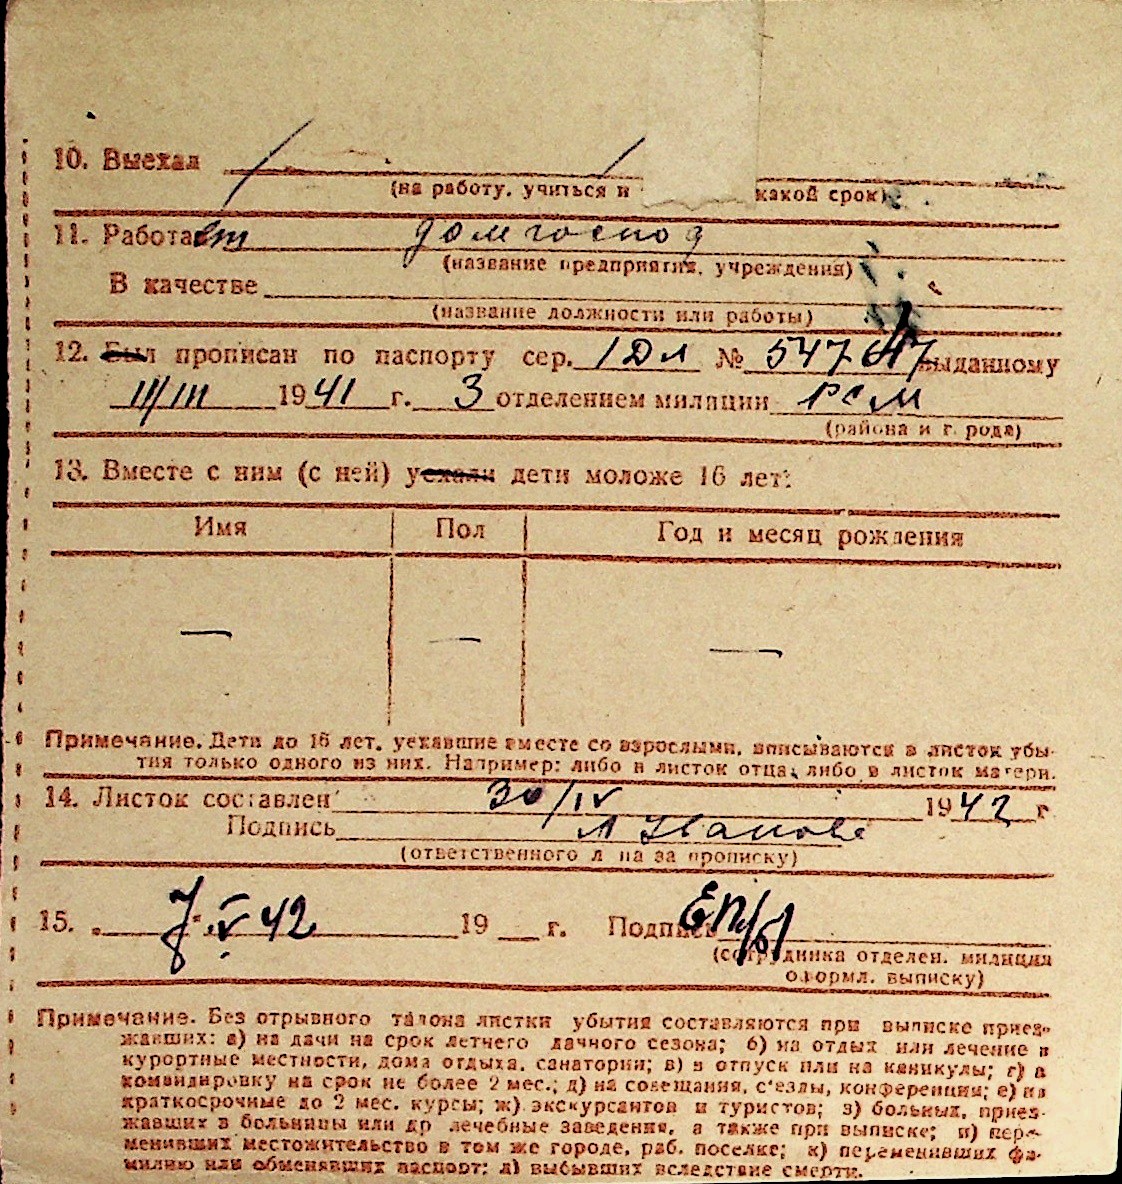 10. Выехал
(на работу, учиться и
какой срок)
11. Работает домгоспод
(название предприятия, учреждения)
В качестве
(название должности или работы)
12. Был прописан по паспорту сер. 1 Дл № выданному
III/III 1941 г. 3 отделением милиции РСМ
(района и г. рода)
13. Вместе с ним (с ней) уехали дети моложе 16 лет:
Имя Пол Год и месяц рождения
— — —
Примечание. Дети до 16 лет, уехавшие вместе со взрослыми, вписываются в листок убы-
тия только одного из них. Например: либо в листок отца, либо в листок матери.
14. Листок составлен 30/IV 1942 г.
Подпись
(ответственного л па за прописку)
15. 7.V 42 19 г. Подпись
(сотрудника отделен. милиции
оформл. выписку)
Примечание. Без отрывного талона листки убытия составляются при выписке приез-
жавших: а) на дачи на срок летнего дачного сезона; б) на отдых или лечение в
курортные местности, дома отдыха, санатории; в) в отпуск или на каникулы; г) в
командировку на срок не более 2 мес.; д) на совещания, с'езды, конференции; е) на
краткосрочные до 2 мес. курсы; ж) экскурсантов и туристов; з) больных, приез-
жавших в больницы или др лечебные заведения, а также при выписке; и) пере-
менивших местожительство в том же городе, раб. поселке; к) переменивших фа-
милию или обменявших паспорт; л) выбывших вследствие смерти.